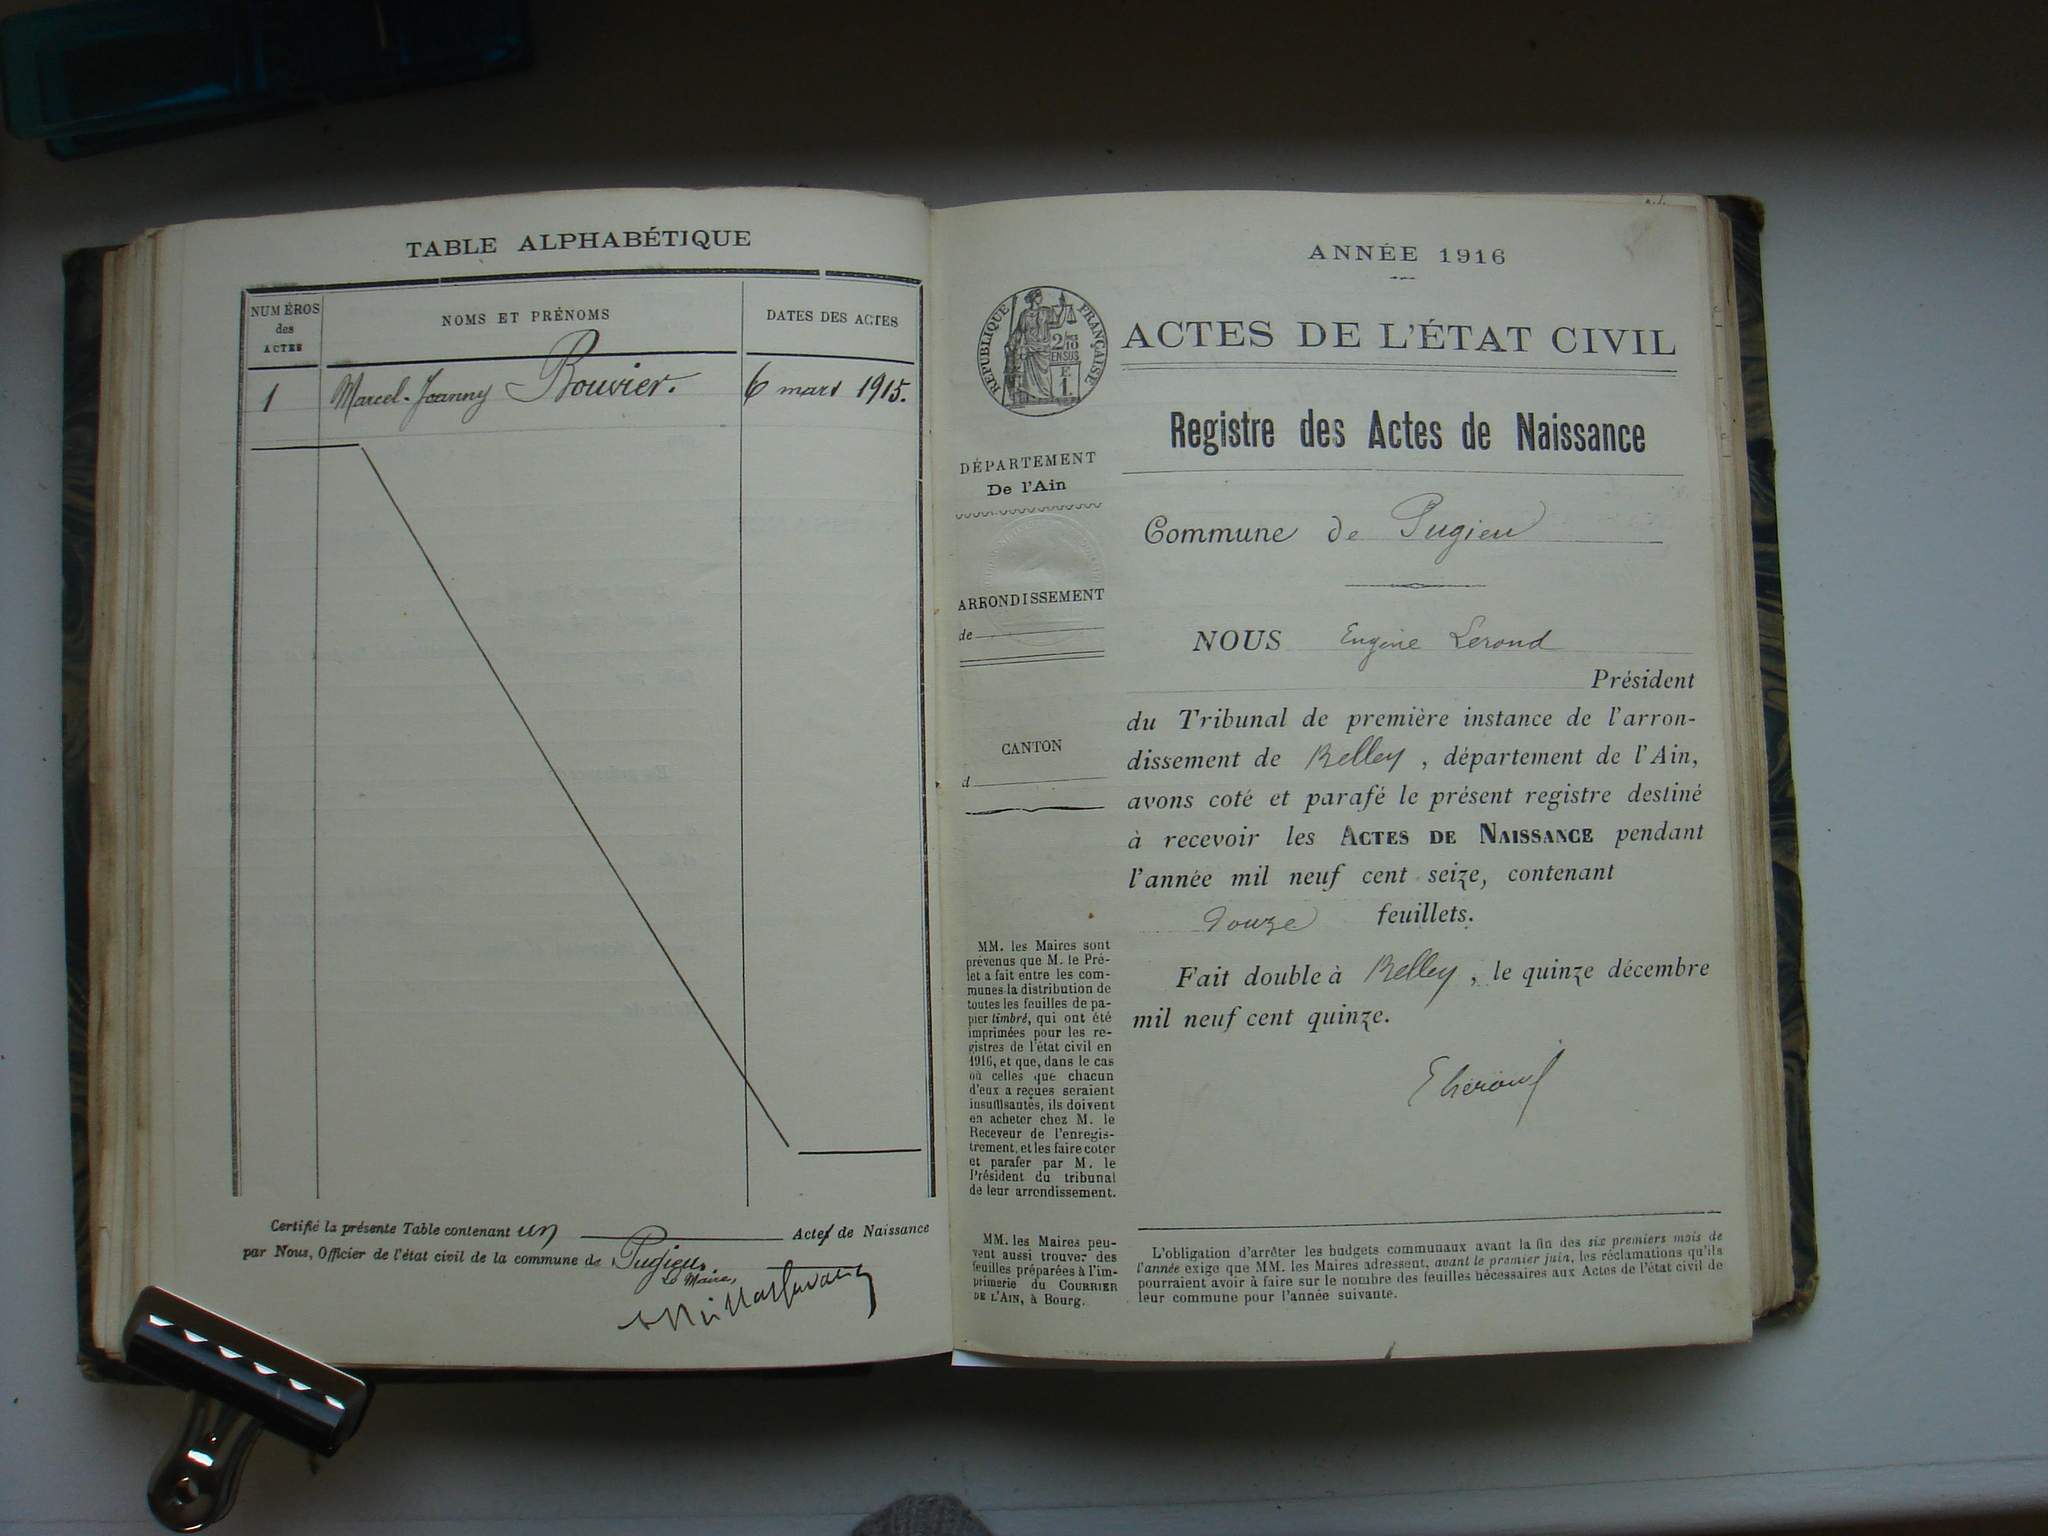 TABLE ALPHABÉTIQUE
NUMÉROS
des
ACTES
NOMS ET PRÉNOMS
DATES DES ACTES
1
Marcel-Joanny Bouvier.
6 mars 1915.
Certifié la présente Table contenant un Actes de Naissance
par Nous, Officier de l'état civil de la commune de Pugieu.
Le Maire,
ANNÉE 1916
RÉPUBLIQUE FRANÇAISE
2/10
EN SUS
E.
1.
ACTES DE L'ÉTAT CIVIL
Registre des Actes de Naissance
DÉPARTEMENT
De l'Ain
ARRONDISSEMENT
de
CANTON
d
Commune de Pugieu
NOUS Eugène Lerond
Président
du Tribunal de première instance de l'arron-
dissement de Belley, département de l'Ain,
avons coté et parafé le présent registre destiné
à recevoir les ACTES DE NAISSANCE pendant
l'année mil neuf cent seize, contenant
douze feuillets.
Fait double à Belley, le quinze décembre
mil neuf cent quinze.
MM. les Maires sont
prévenus que M. le Pré-
fet a fait entre les com-
munes la distribution de
toutes les feuilles de pa-
pier timbré, qui ont été
imprimées pour les re-
gistres de l'état civil en
1916, et que, dans le cas
où celles que chacun
d'eux a reçues seraient
insuffisantes, ils doivent
en acheter chez M. le
Receveur de l'enregis-
trement, et les faire coter
et parafer par M. le
Président du tribunal
de leur arrondissement.
MM. les Maires peu-
vent aussi trouver des
feuilles préparées à l'im-
primerie du COURRIER
DE L'AIN, à Bourg.
L'obligation d'arrêter les budgets communaux avant la fin des six premiers mois de
l'année exige que MM. les Maires adressent, avant le premier juin, les réclamations qu'ils
pourraient avoir à faire sur le nombre des feuilles nécessaires aux Actes de l'état civil de
leur commune pour l'année suivante.